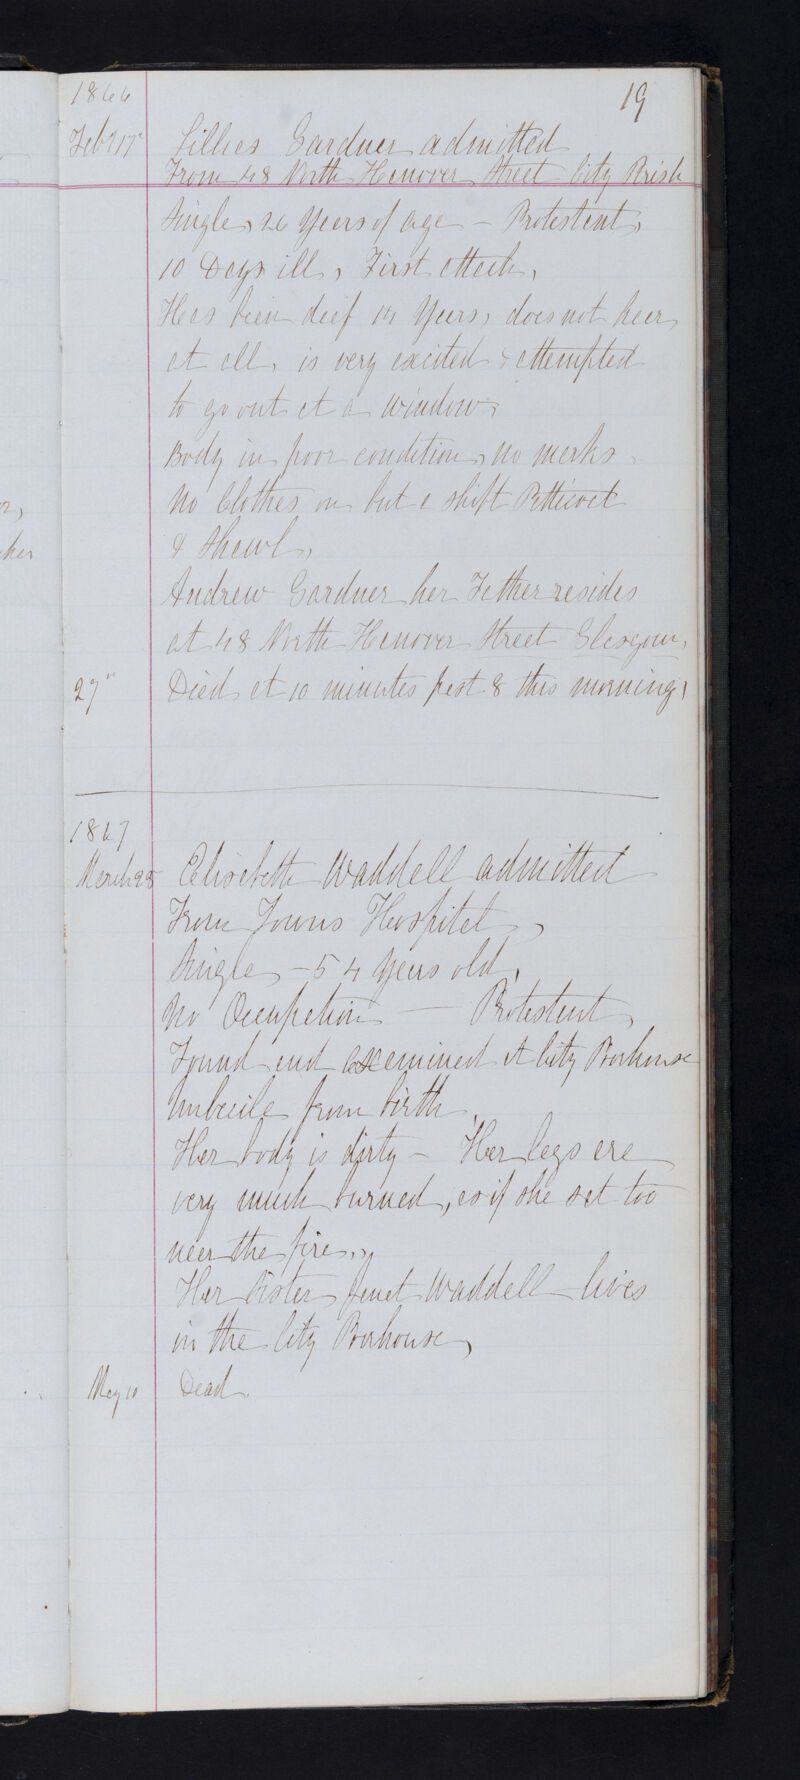 19
1866
Feby 17th Lillias Gardner admitted
From 48 North Hanover Street City Parish
Single, 26 Years of age - Protestant,
10 Days ill, First attack,
Has been deaf 14 Years, does not hear
at all, is very excited & attempted
to go out at a window,
Body in poor condition, no marks,
No Clothes on but a shift Petticoat
& Shawl,
Andrew Gardner her Father resides
at 48 North Hanover Street Glasgow,
27th Died at 10 minutes past 8 this morning,
1867
March 28 Elisabeth Waddell admitted
From Towns Hospital,
Single, - 54 Years old,
No Occupation - Protestant,
Found and examined at City Poorhouse
Imbecile from birth,
Her body is dirty - Her legs are
very much burned, as if she sat too
near the fire,
Her Sister Janet Waddell lives
in the City Poorhouse,
May 10 Dead.